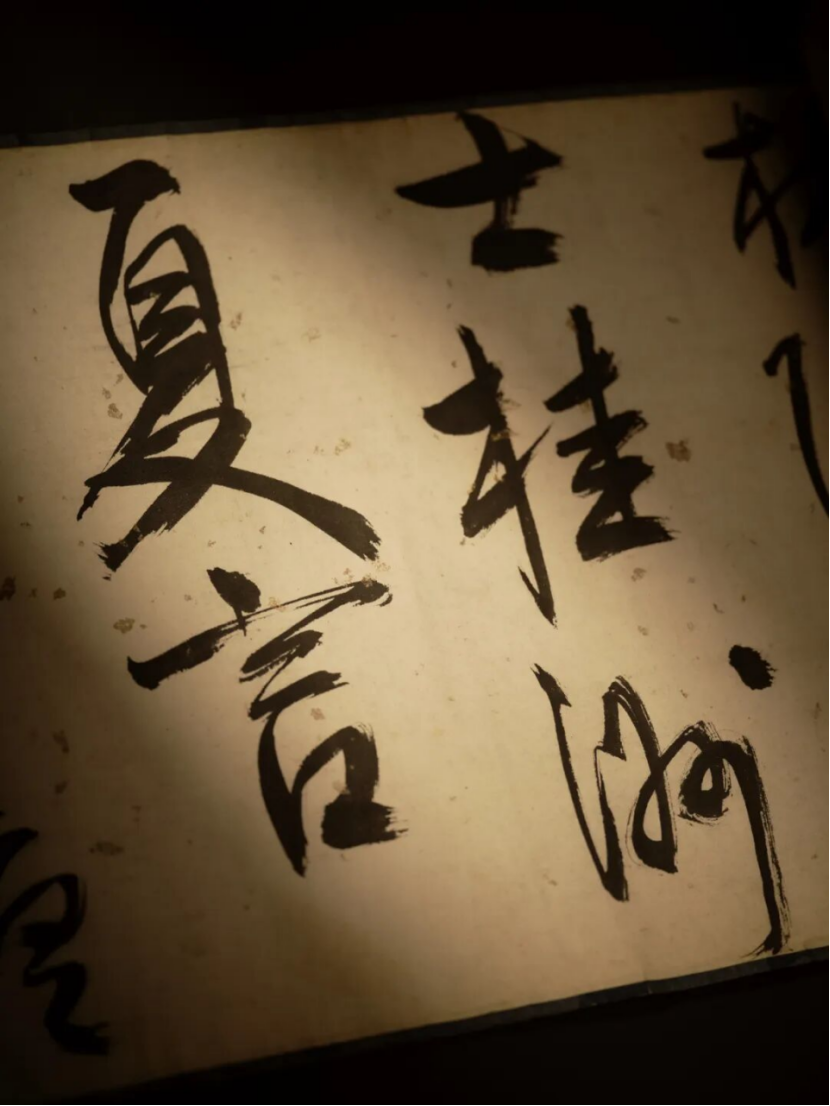 士桂洲
夏言